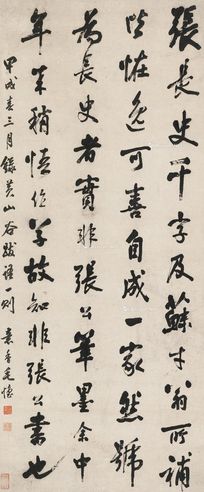 張長史千字及蘇才翁所補
皆怪逸可喜自成一家然號
為長史者實非張公筆墨余中
年來稍悟作草故知非張公書也
甲戌春三月錄黃山谷跋語一則 素香毛懷